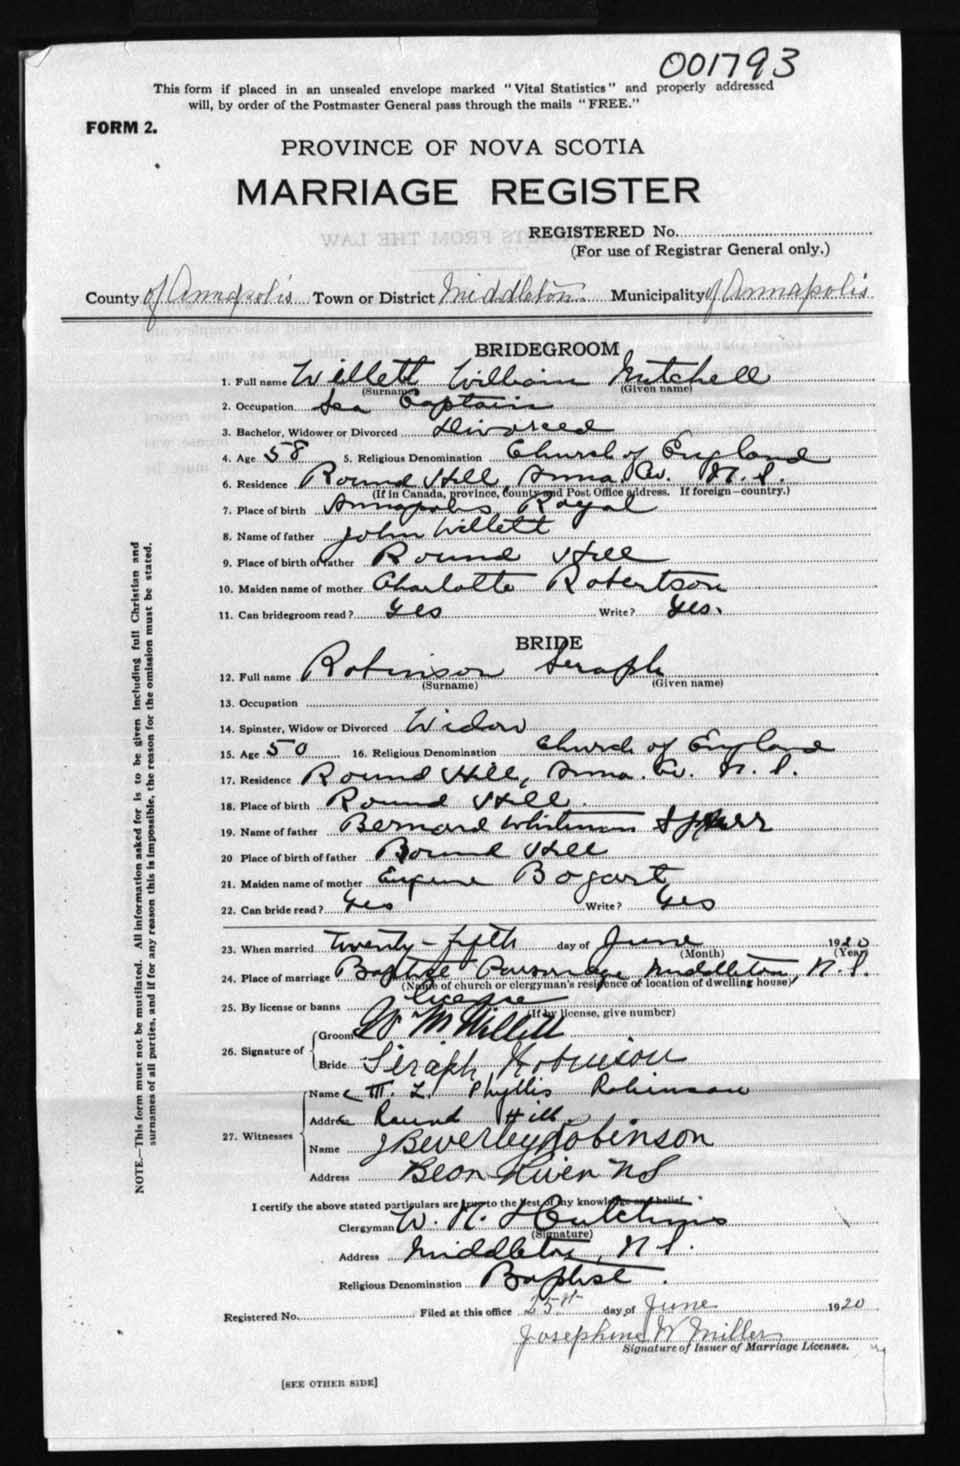 001793
This form if placed in an unsealed envelope marked "Vital Statistics" and properly addressed
will, by order of the Postmaster General pass through the mails "FREE."
FORM 2.
PROVINCE OF NOVA SCOTIA
MARRIAGE REGISTER
REGISTERED No.
(For use of Registrar General only.)
County of Annapolis Town or District Middleton. Municipality of Annapolis
BRIDEGROOM
1. Full name Willett William Mitchell
(Surname) (Given name)
2. Occupation Sea Captain
3. Bachelor, Widower or Divorced Divorced
4. Age 58 5. Religious Denomination Church of England
6. Residence Round Hill, Anna. Co. N.S.
(If in Canada, province, County and Post Office address. If foreign—country.)
7. Place of birth Annapolis Royal
8. Name of father John Willett
9. Place of birth of father Round Hill
10. Maiden name of mother Charlotte Robertson
11. Can bridegroom read? Yes Write? Yes.
BRIDE
12. Full name Robinson Seraph
(Surname) (Given name)
13. Occupation
14. Spinster, Widow or Divorced Widow
15. Age 50 16. Religious Denomination Church of England
17. Residence Round Hill, Anna. Co. N.S.
18. Place of birth Round Hill.
19. Name of father Bernard Whitman Spurr
20 Place of birth of father Round Hill
21. Maiden name of mother Bogart
22. Can bride read? Yes Write? Yes
23. When married Twenty-fifth day of June 1920
(Month) (Year)
24. Place of marriage Baptist Parsonage Middleton, N.S.
(Name of church or clergyman's residence or location of dwelling house)
25. By license or banns license
(If by license, give number)
26. Signature of Groom W M Willett
Bride Seraph Robinson
27. Witnesses Name Phyllis Robinson
Address Round Hill
Name J Beverley Robinson
Address Bear River NS
I certify the above stated particulars are true to the best of my knowledge and belief.
Clergyman W. H. Hutchins
(Signature)
Address Middleton, N.S.
Religious Denomination Baptist.
Registered No. Filed at this office 25th day of June 1920
Josephine W Miller
Signature of Issuer of Marriage Licenses.
[SEE OTHER SIDE]
NOTE.—This form must not be mutilated. All information asked for is to be given including full Christian and
surnames of all parties, and if for any reason this is impossible, the reason for the omission must be stated.